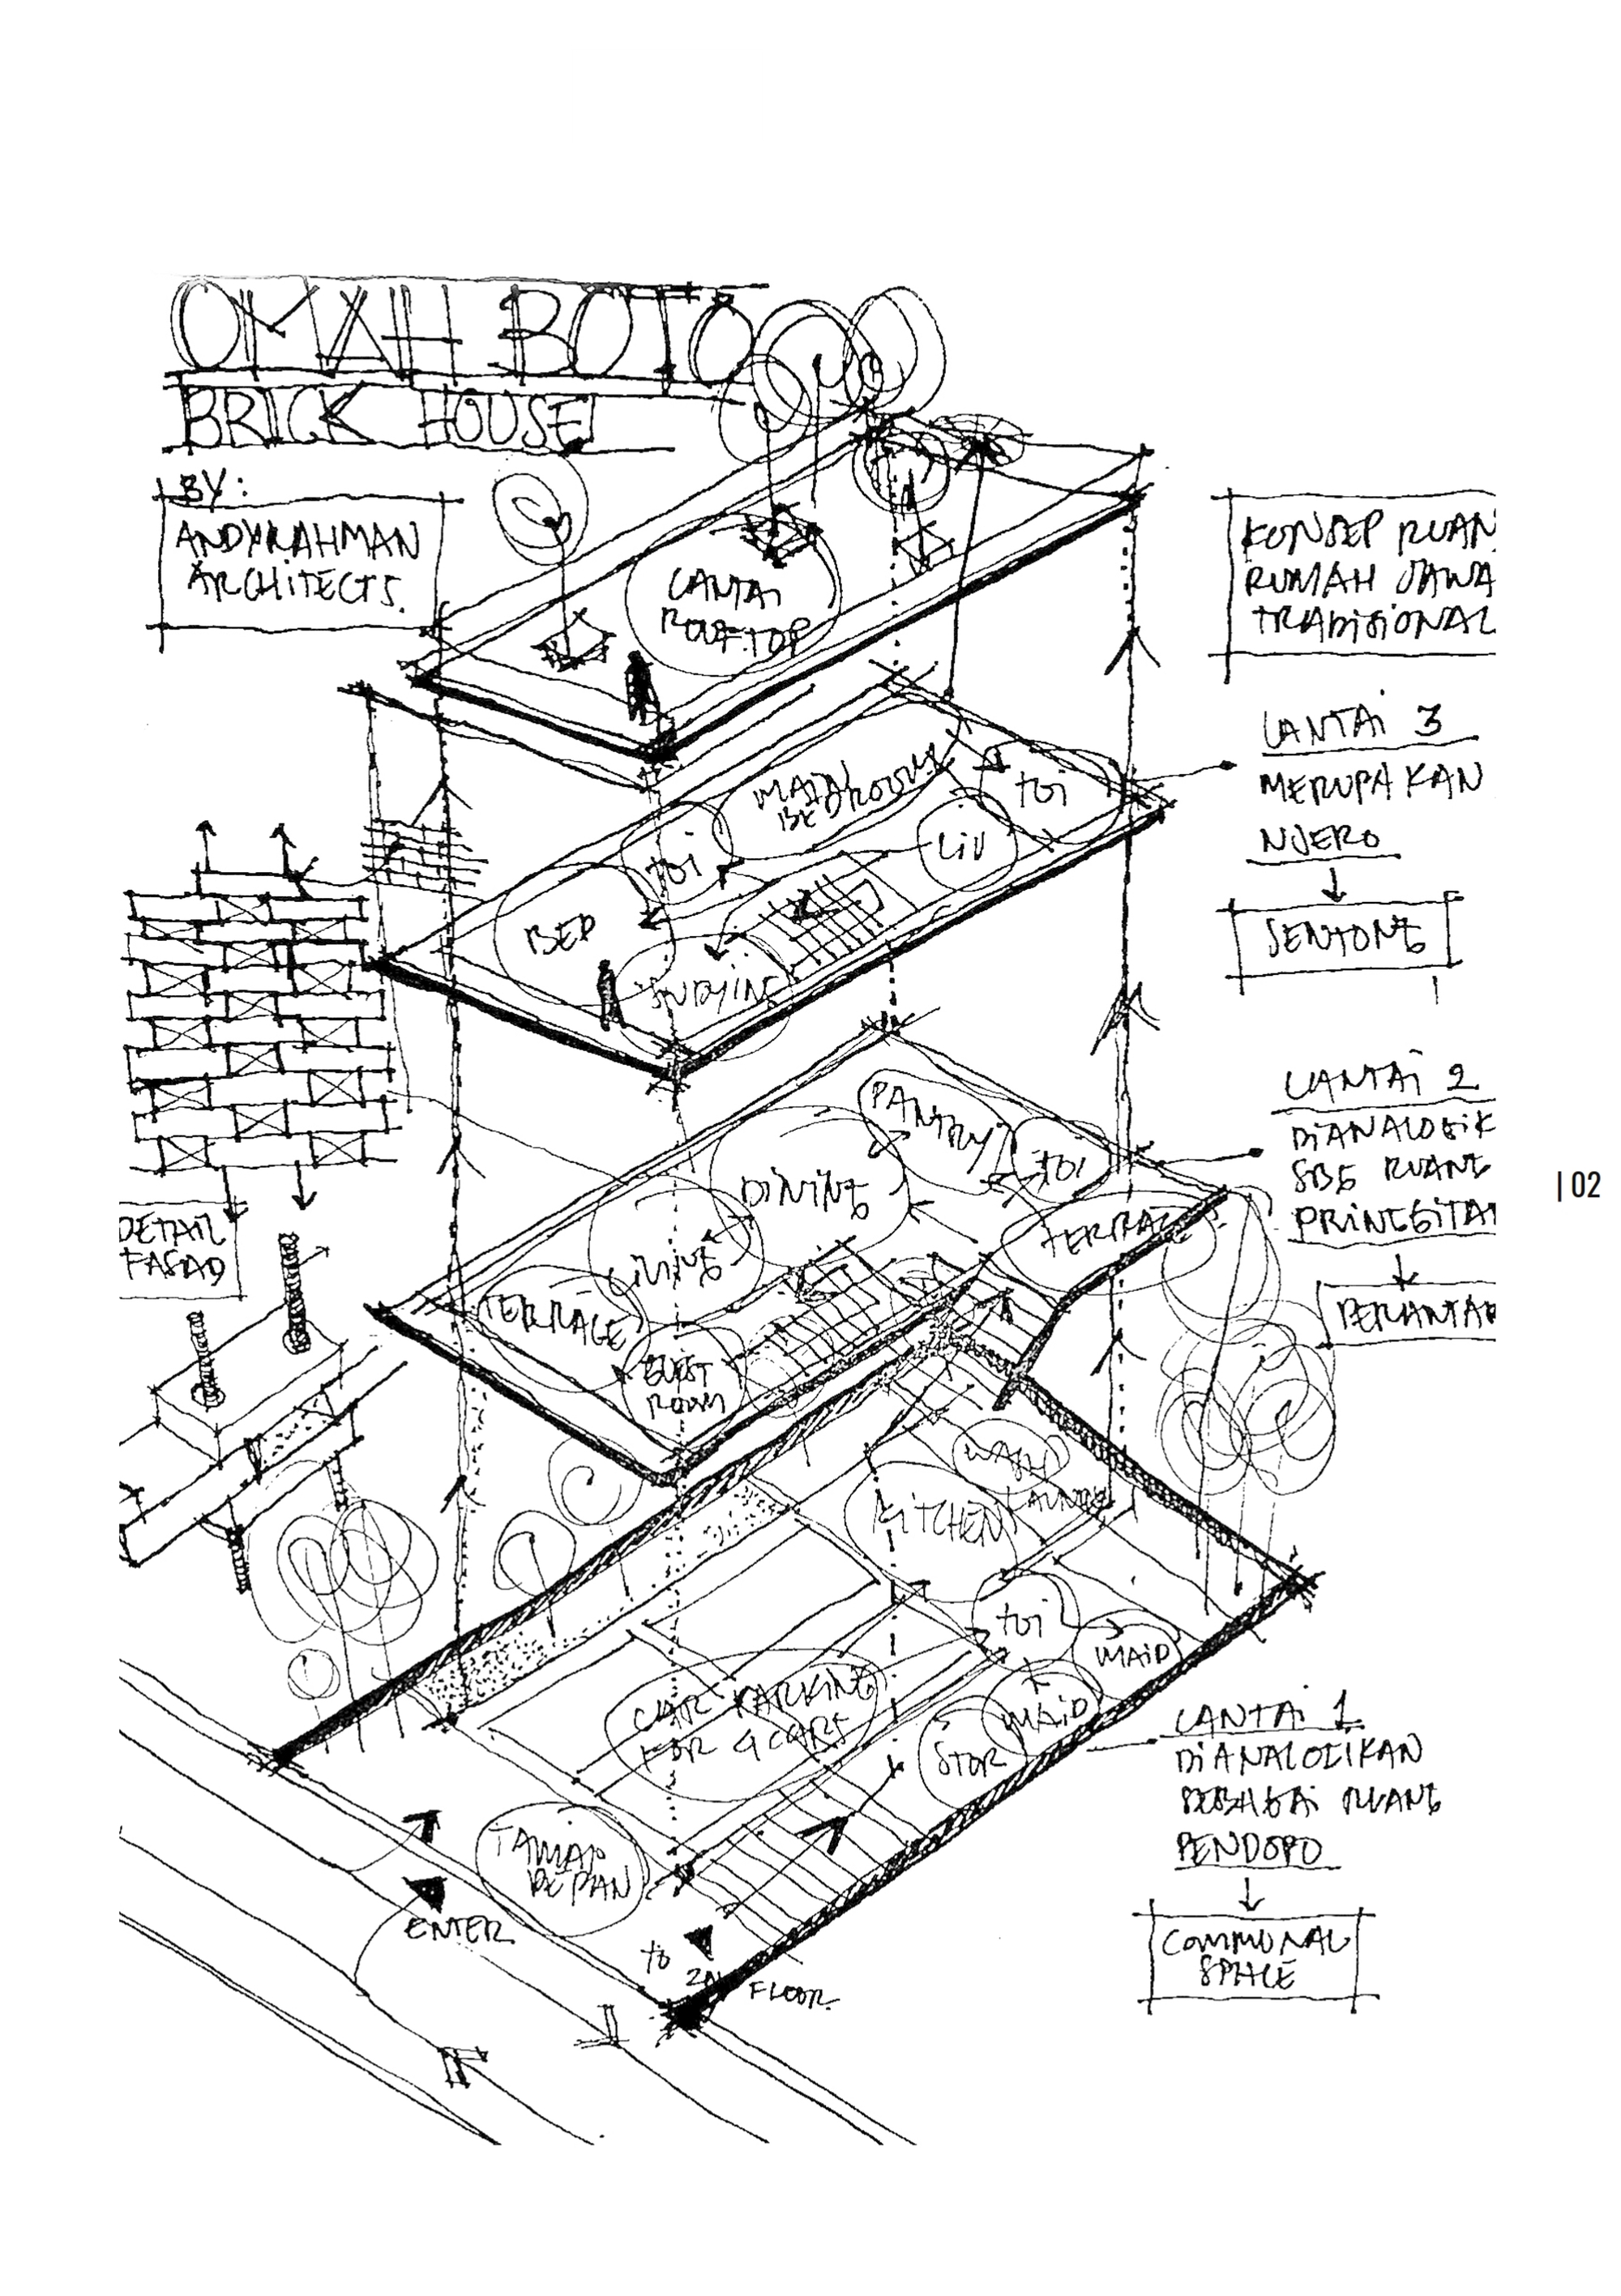 OMAH BOTO
BRICK HOUSE
BY:
ANDYRAHMAN
ARCHITECTS.
KONSEP RUAN
RUMAH JAWA
TRADISIONAL
LANTAI
ROOFTOP
LANTAI 3
MERUPAKAN
NJERO
SENTONG
MAIN
BEDROOM
toi
LIV
toi
BED
STUDYING
LANTAI 2
DIANALOGIK
SBG RUANG
PRINGGITA
PERANTAR
PANTRY
toi
DINING
TERRACE
LIVING
TERRACE
GUEST
ROOM
DETAIL
FASAD
| 02
WASH
LAUNDRY
KITCHEN
toi
MAID
MAID
STOR
CAR PARKING
FOR 4 CARS
TAMAN
DEPAN
ENTER
to
2nd
FLOOR
LANTAI 1
DIANALOGIKAN
SEBAGAI RUANG
PENDOPO
COMMUNAL
SPACE